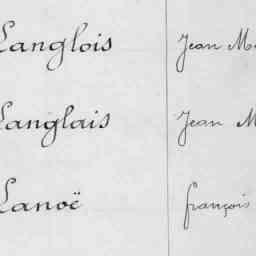 Langlois Jean M
Langlais Jean M
Lanoë françois